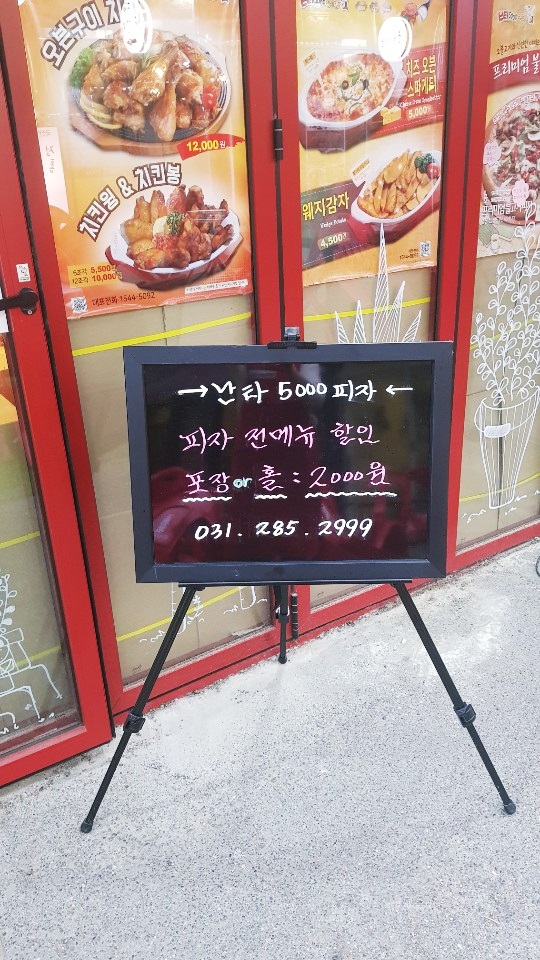 오븐구이 치
12,000원
치킨윙 & 치킨봉
5조각 5,500원
12조각 10,000
대표전화 1544-5092
치즈 오븐
스파게티
5,000원
웨지감자
Wedge Potato
4,500원
프리미엄 불
→난타 5000 피자←
피자 전메뉴 할인
포장 or 홀 : 2000원
031. 285. 2999